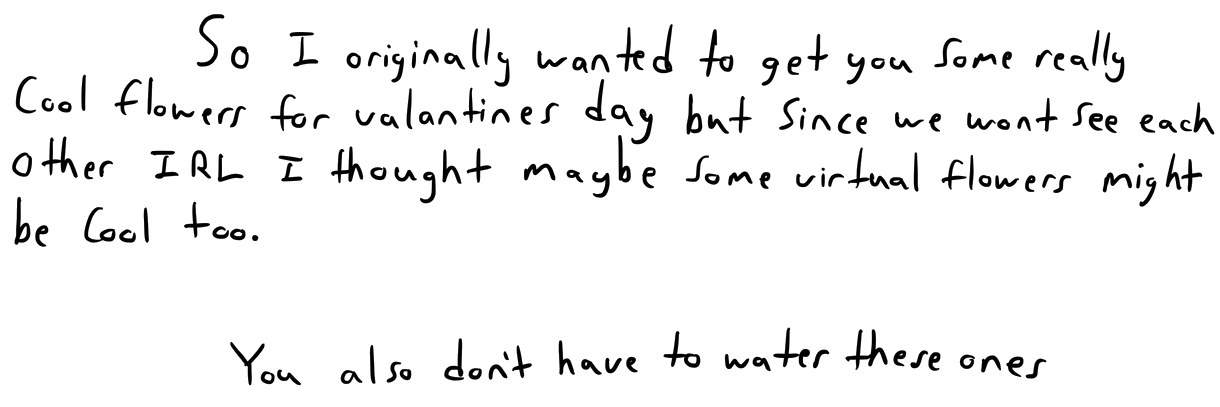 So I originally wanted to get you some really
Cool flowers for valantines day but since we wont see each
other IRL I thought maybe some virtual flowers might
be Cool too.
You also don't have to water these ones